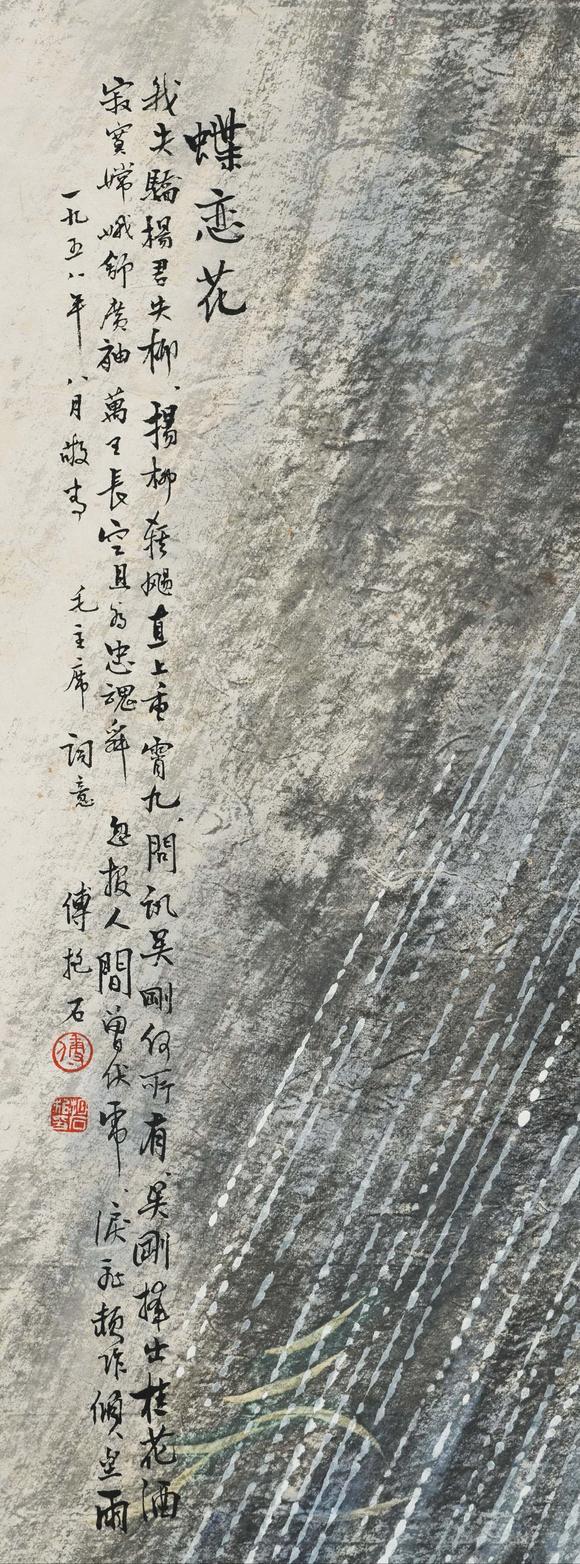 蝶恋花
我失驕楊君失柳、楊柳輕颺直上重霄九、問訊吳剛何所有、吳剛捧出桂花酒
寂寞嫦娥舒廣袖 萬里長空且為忠魂舞 忽報人間曾伏虎 淚飛頓作傾盆雨
一九五八年八月敬寫 毛主席詞意 傅抱石
傅